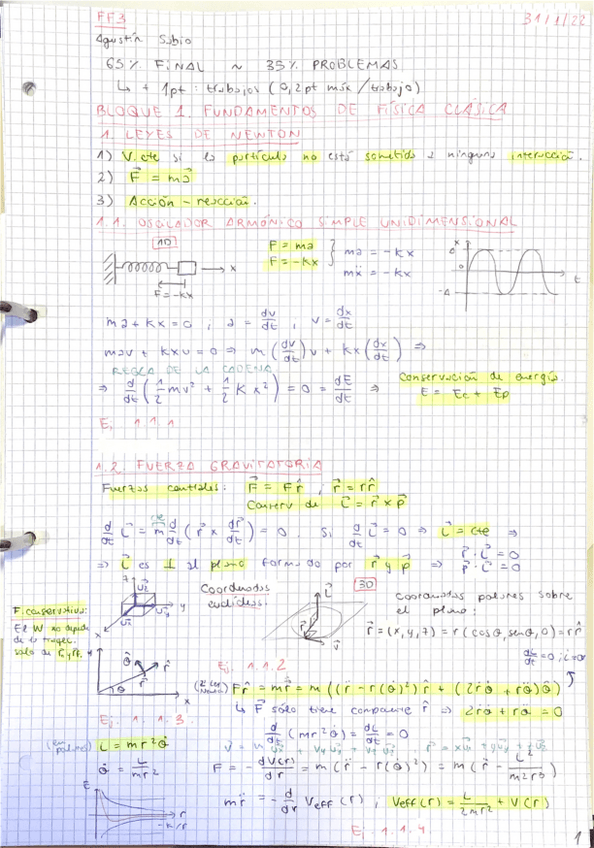 FF3
31/1/22
Agustín Sabio
65% FINAL ~ 35% PROBLEMAS
↳ + 1pt: trabajos (0,2pt máx/trabajo)
BLOQUE 1. FUNDAMENTOS DE FÍSICA CLÁSICA
1. LEYES DE NEWTON
1) V. cte si la partícula no está sometida a ninguna interacción.
2) F⃗ = ma⃗
3) Acción - reacción.
1.1. OSCILADOR ARMÓNICO SIMPLE UNIDIMENSIONAL
1D
F = ma
F = -kx
ma = -kx
mẍ = -kx
x
F = -kx
x
A
0
-A
t
ma + kx = 0 ; a = dv/dt , v = dx/dt
mav + kxv = 0 ⇒ m(dv/dt)v + kx(dx/dt) ⇒
REGLA DE LA CADENA
⇒ d/dt (1/2 mv² + 1/2 K x²) = 0 = dE/dt ⇒ Conservación de energía
E = Ec + Ep
Ej 1.1.1
1.2. FUERZA GRAVITATORIA
Fuerzas centrales: F⃗ = F r̂ , r⃗ = r r̂
Conserv de L⃗ = r⃗ × p⃗
d/dt L⃗ = m d/dt (r⃗ × dr⃗/dt) = 0. Si d/dt L⃗ = 0 ⇒ L⃗ = cte ⇒
cte
⇒ L⃗ es ⊥ al plano formado por r⃗ y p⃗ ⇒ r⃗ · L⃗ = 0
p⃗ · L⃗ = 0
F. conservativa:
El W no depende
de la trayec.
Coordenadas
euclídeas.
3D
L⃗
Coordenadas polares sobre
el plano:
r⃗ = (x, y, z) = r (cosθ, senθ, 0) = r r̂
Ej. 1.1.2
F r̂ = m r⃗̈ = m ((r̈ - r(θ̇)²) r̂ + (2ṙθ̇ + rθ̈) θ̂)
↳ F⃗ sólo tiene componente r̂ ⇒ 2ṙθ̇ + rθ̈ = 0
Ej. 1.1.3.
d/dt (mr²θ̇) = dL/dt = 0
(en polares) L = mr²θ̇
θ̇ = L/mr²
F = - dV(r)/dr = m(r̈ - r(θ̇)²) = m(r̈ - L²/m²r³)
E
r
-k/r
m r̈ = - d/dr Veff(r) ; Veff(r) = L²/2mr² + V(r)
Ej 1.1.4
1